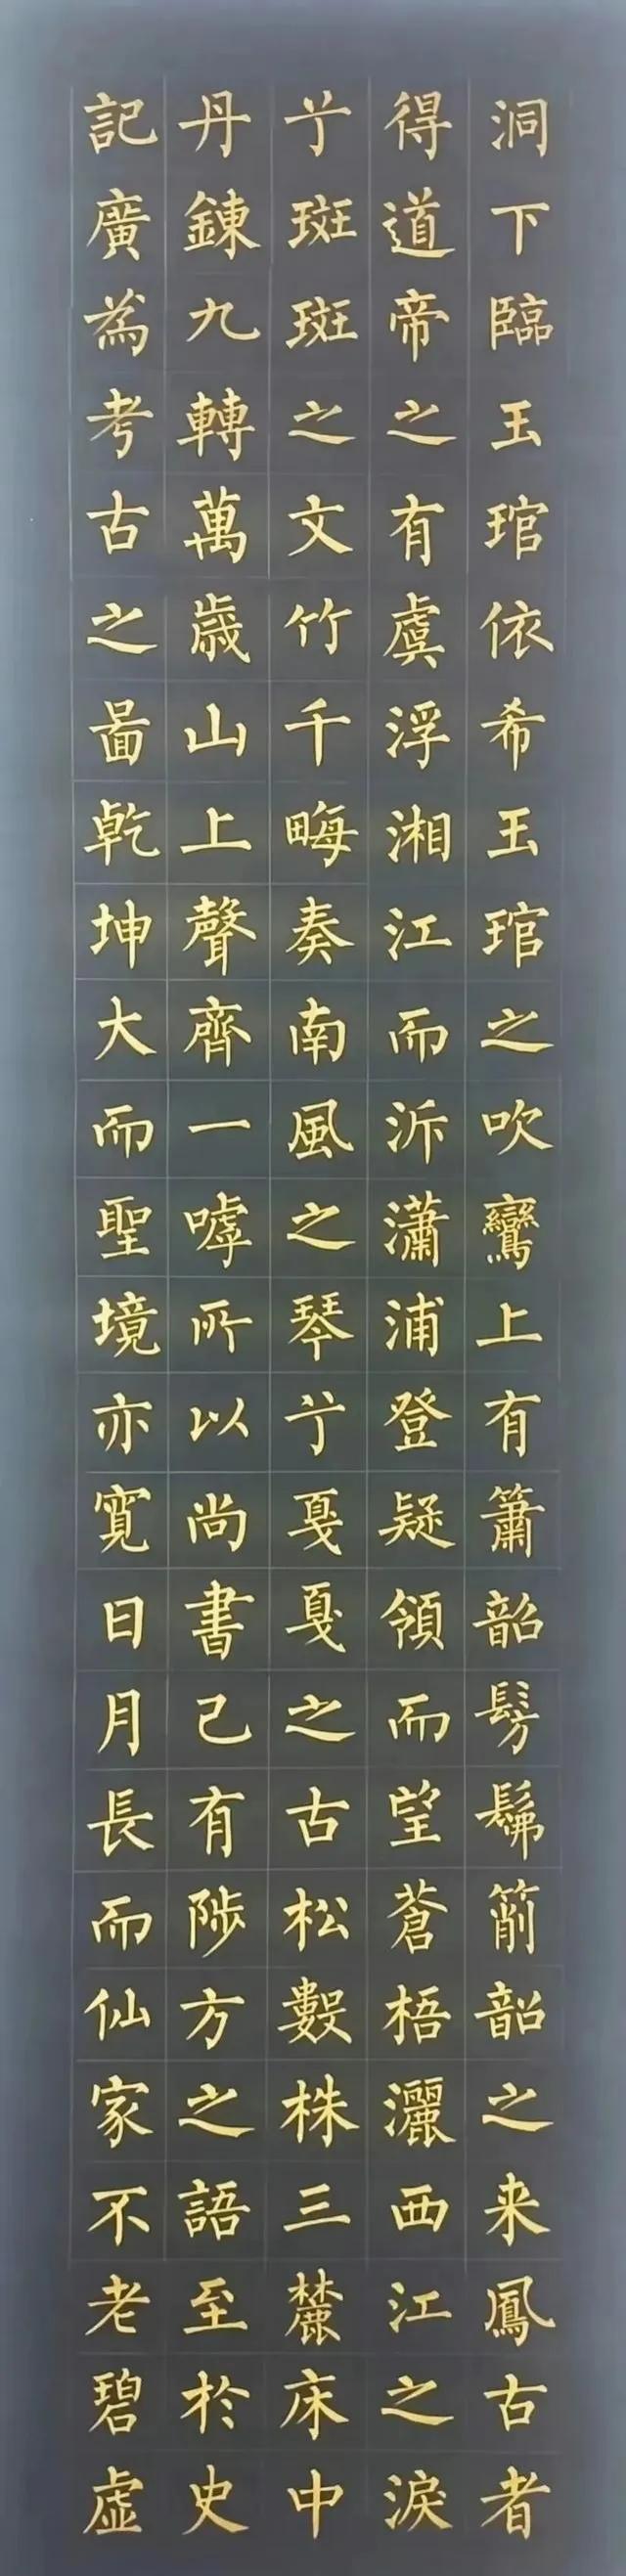 洞下臨玉琯依希玉琯之吹鸞上有簫韶髣髴箾韶之来鳳古者
得道帝之有虞浮湘江而泝瀟浦登疑領而望蒼梧灑西江之淚
亍斑斑之文竹千畮奏南風之琴亍戛戛之古松數株三麓床中
丹鍊九轉萬歳山上聲齊一嘑所以尚書已有陟方之語至於史
記廣為考古之啚乾坤大而聖境亦寬日月長而仙家不老碧虛